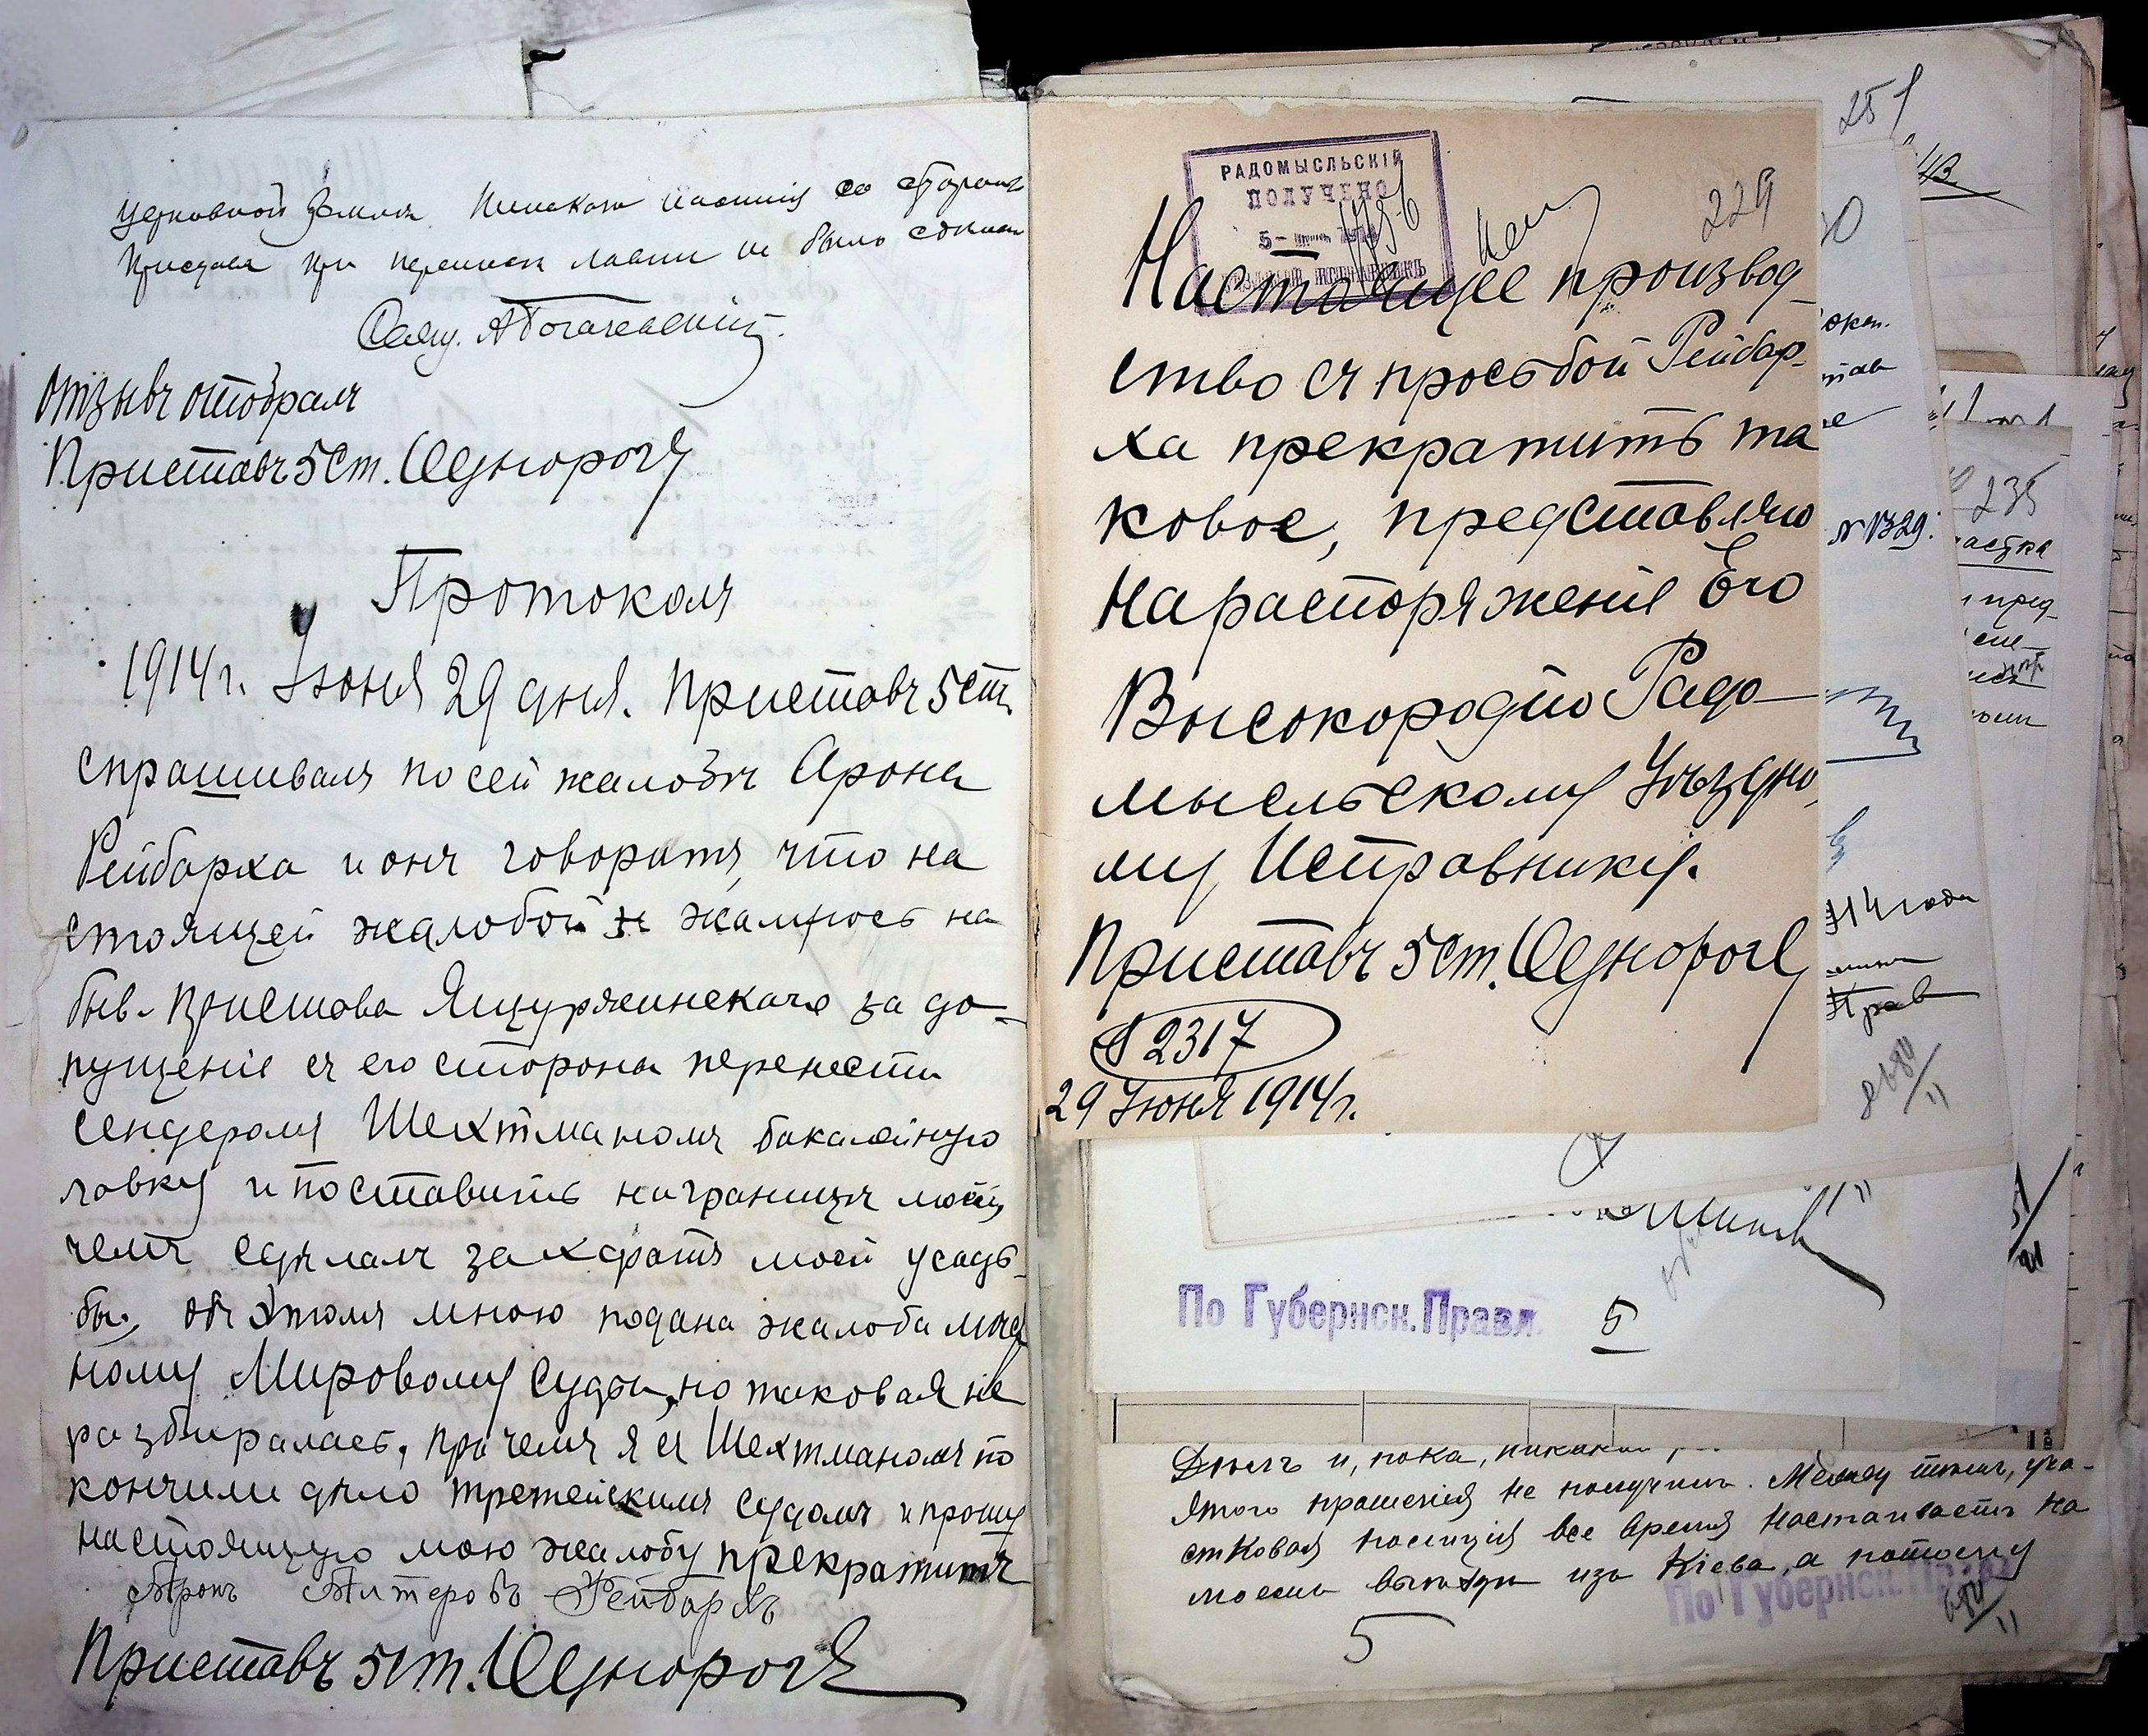 церковной земли. Никакого насилія со стороны
Пристава при переноск лавки не было сделано
Свящ. А Богачевскій
Отзывъ отобралъ
Приставъ 5 ст. Еднорогъ
Протоколъ
1914 г. Іюня 29 дня. Приставъ 5 ст.
спрашивалъ по сей жалобѣ Арона
Рейбарха и онъ говоритъ, что на
стоящей жалобой жалуюсь на
быв. Пристава Ящуржинскаго за до-
пущеніе съ его стороны перенести
Сендеромъ Шехтманомъ бакалейную
лавку и поставить на границѣ моей
чемъ сдѣлалъ захватъ моей усадь-
бы, объ этомъ мною подана жалоба
ному Мировому Судьи, но таковая не
разбиралась, при чемъ я съ Шехтманомъ по
кончили дѣло третейскимъ судомъ и прошу
настоящую мою жалобу прекратить
Аронъ Алтеровъ Рейбархъ
Приставъ 5 ст. Еднорогъ
РАДОМЫСЛЬСКІЙ
ПОЛУЧЕНО
5-
229
Настоящее производ-
ство съ просьбой Рейбар-
ха прекратить та
ковое, представляю
на распоряженіе Его
Высокородію Радо-
мысльскому Уѣздно
му Исправнику.
Приставъ 5 ст. Еднорогъ
№ 2317
29 Іюня 1914 г.
251
43.
№ 1329.
235
астка
пред-
914 года
Прав
680/11
По Губернск. Правл.
5
и, пока,
этого прошенія не получилъ. Между тѣмъ, уча-
стковая полиція все время настаиваетъ на
моемъ выѣздѣ изъ Кіева, а потому
По Губернск.
680/11
5